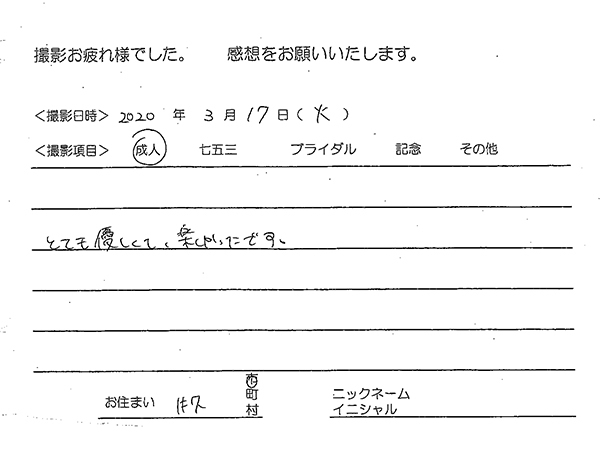 撮影お疲れ様でした。　感想をお願いいたします。
＜撮影日時＞ 2020 年 3 月 17 日（ 火 ）
＜撮影項目＞ 成人 七五三 ブライダル 記念 その他
とても優しくて、楽しかったです。
お住まい 市 町 村 ニックネーム
イニシャル